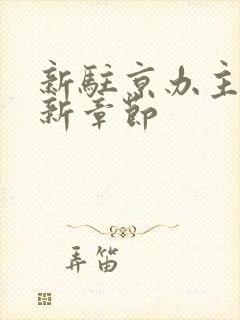 新駐京办主
新章節
弄笛